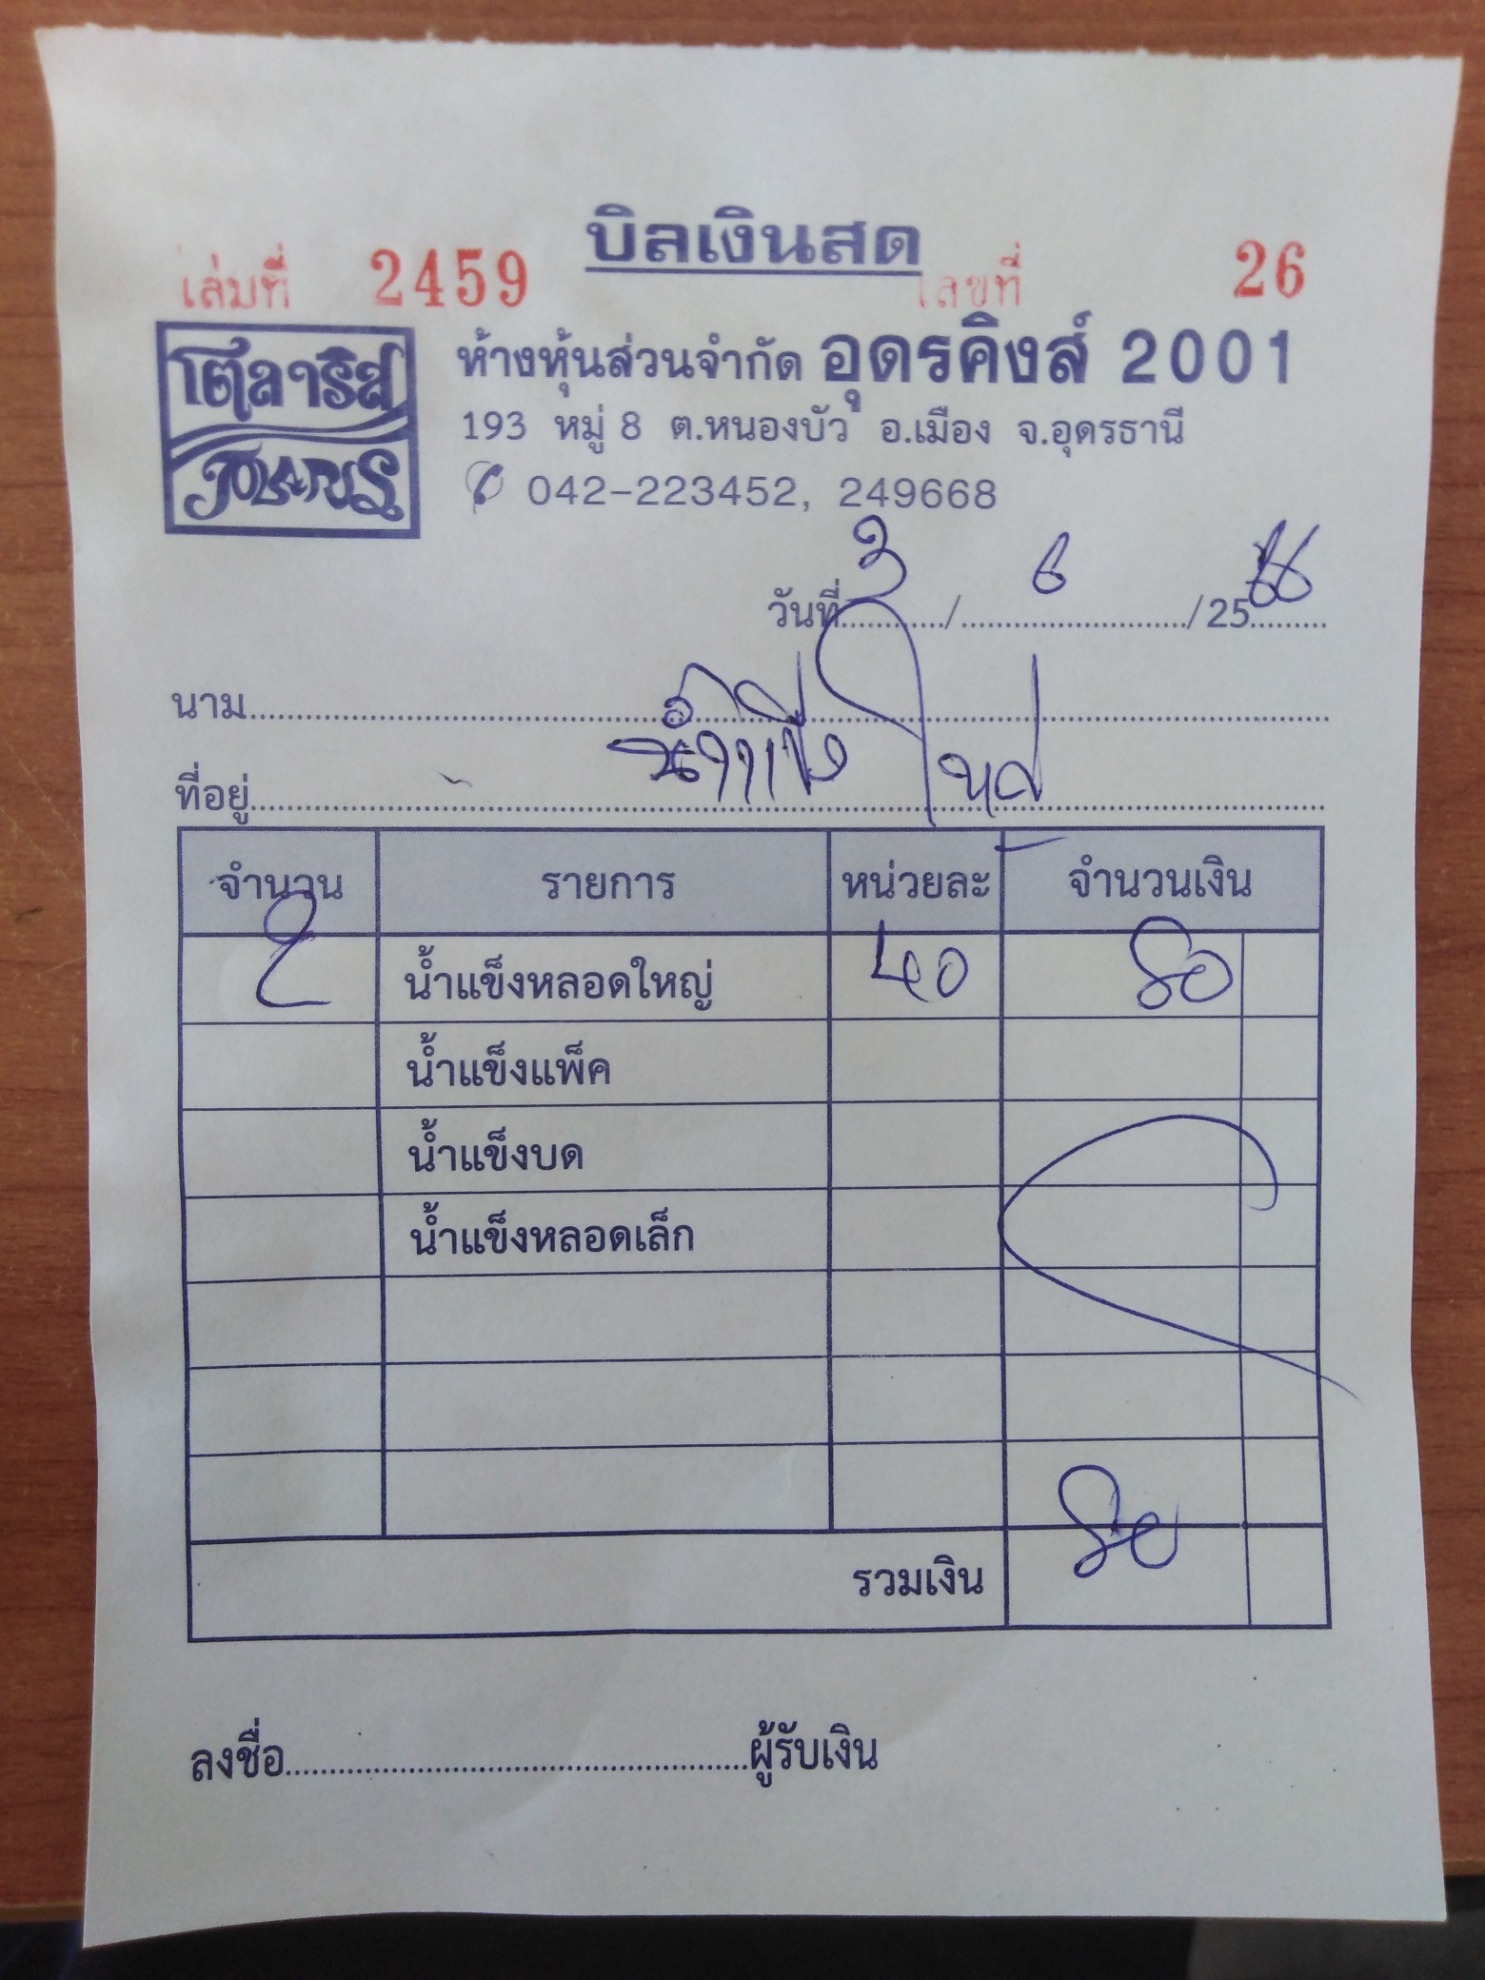 บิลเงินสด
เล่มที่ 2459 เลขที่ 26
โตลาริส
POLARIS
ห้างหุ้นส่วนจำกัด อุดรคิงส์ 2001
193 หมู่ 8 ต.หนองบัว อ.เมือง จ.อุดรธานี
042-223452, 249668
วันที่ 3 / 6 / 25
นาม
ที่อยู่
จำนวน รายการ หน่วยละ จำนวนเงิน
2 น้ำแข็งหลอดใหญ่ 40 80
น้ำแข็งแพ็ค
น้ำแข็งบด
น้ำแข็งหลอดเล็ก
รวมเงิน 80
ลงชื่อ ผู้รับเงิน